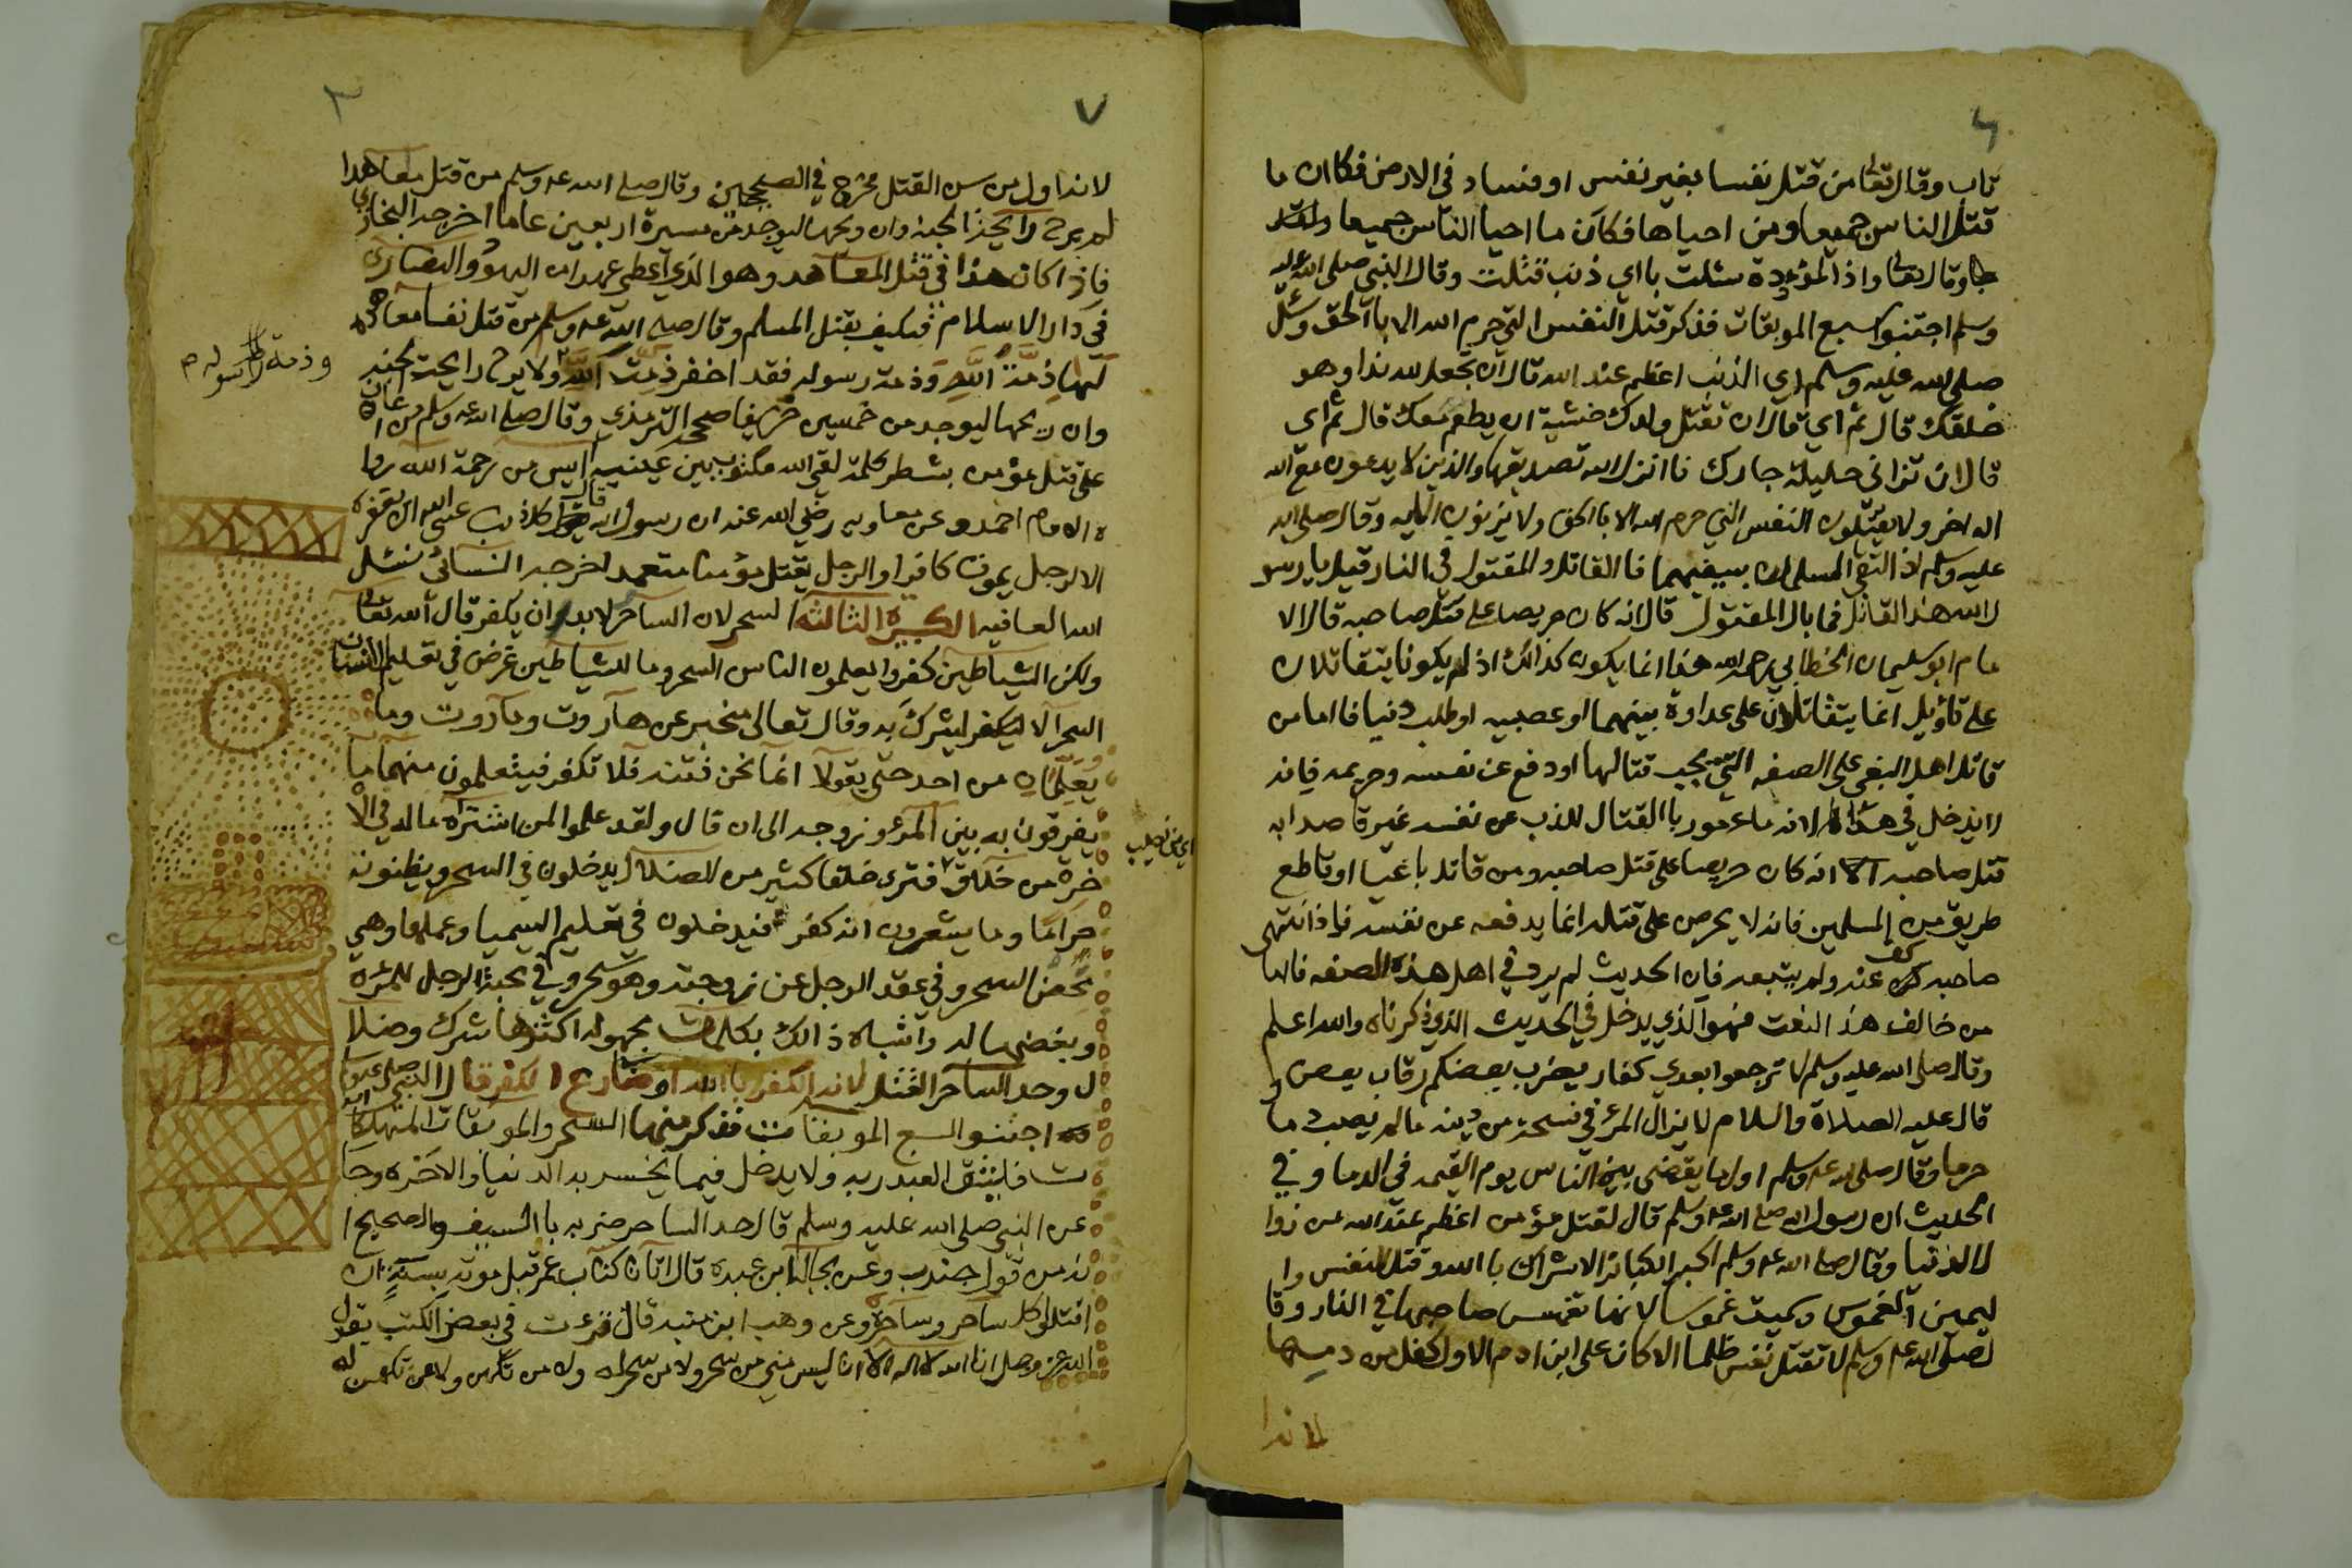 تاب وقال تعالى من قتل نفسا بغير نفس او فساد في الارض فكان ما
قتل الناس جميعا ومن احياها فكان ما احيا الناس جميعا
وقال تعالى واذا المؤودة سئلت بااي ذنب قتلت وقال النبي صلى الله عليه
وسلم اجتنبوا السبع الموبقات فذكر قتل النفس التي حرم الله الا باالحق وسئل
صلى الله عليه وسلم اي الذنب اعظم عند الله قال ان تجعل لله ندا وهو
خلقك قال ثم اي قال ان تقتل ولدك خشية ان يطعم معك قال ثم اى
قال ان تزاني حليلة جارك فاانزل الله تصديقها والذين لا يدعون مع الله
اله اخر ولا يقتلون النفس التي حرم الله الا باالحق ولا يزنون الايه وقال صلى الله
عليه وسلم اذا التقى المسلمان بسيفيهما فاالقاتل والمقتول في النار قيل يا رسو
ل الله هذا القاتل فما بال المقتول قال انه كان حريصا على قتل صاحبه قال الا
مام ابو سليمان الخطابي رحمه الله هذا انما يكون كذالك اذ لم يكونا يتقاتلان
على تاؤيل انما يتقاتلان على عداوة بينهما او عصبيه او طلب دنيا فااما من
قاتل اهل البغي على الصفه التي يجب قتالها او دفع عن نفسه وحريمه فانه
لا يدخل في هذا لانه مامور باالقتال للذب عن نفسه غير قاصد ابه
قتل صاحبه الا انه كان حريصا على قتل صاحبه ومن قاتل باغيا او قاطع
طريق من المسلمين فانه لا يحرص على قتله انما يدفعه عن نفسه فاذا انتهى
صاحبه كف عنه ولم يتبعه فان الحديث لم يرد في اهل هذه الصفه فااما
من خالف هذ النعت فهو الذي يدخل في الحديث الذي ذكرناه والله اعلم
وقال صلى الله عليه وسلم لا ترجعوا بعدي كفار يضرب بعضكم رقاب بعض و
قال عليه الصلاة والسلام لا يزال المرء في فسحة من دينه مالم يصب دما
حرما وقال صلى الله عليه وسلم اول ما يقضى بين الناس يوم القيمه في الدما وفي
الحديث ان رسول الله صلى الله عليه وسلم قال لقتل مؤمن اعظم عند الله من زوا
ل الدنيا وقال صلى الله عليه وسلم اكبر الكبائر الاشراك باالله وقتل النفس وا
ليمين الغموس وسميت غموسا لانها تغمس صاحبها في النار وقا
ل صلى الله عليه وسلم لا تقتل نفس ظلما الا كان على ابن ادم الاول كفل من دمها
لانه ا
٧
لانه اول من سن القتل مخرج في الصحيحين وقال صلى الله عليه وسلم من قتل معاهدا
لم يرح رايحة الجنه وان ريحها ليوجد من مسيرة اربعين عاما اخرجه البخاري
فاذا كان هذا في قتل المعاهد وهو الذي اعطي عهدا من اليهود والنصارى
في دار الاسلام فكيف بقتل المسلم وقال صلى الله عليه وسلم من قتل نفسا معاهده
لها ذمة الله وذمة رسوله فقد اخفر ذمت الله ولا يرح رايحة الجنه
وان ريحها ليوجد من خمسين خريفا صححه الترمذي وقال صلى الله عليه وسلم من اعان
على قتل مؤمن بشطر كلمة لقي الله مكتوب بين عينيه ايس من رحمة الله روا
ه الامام احمد وعن معاويه رضي الله عنه ان رسول الله قال كل ذنب عسى الله ان يغفره
الا الرجل يموت كافرا او الرجل يقتل مؤمنا متعمد اخرجه النسائى نسئل
الله العافيه الكبيرة الثالثه السحر لان الساحر لابد ان يكفر قال الله تعالى
ولكن الشياطين كفروا يعلمون الناس السحر وما للشياطين غرض في تعليم الانسان
السحر الا ليكفر ليشرك به وقال تعالى مخبر عن هاروت وماروت وما
يعلمان من احد حتى يقولا انما نحن فتنه فلا تكفر فيتعلمون منهما ما
يفرقون به بين المرء وزوجه الى ان قال ولقد علموا لمن اشتراه ماله في الا
خرة من خلاق فترى خلقا كثير من الضلال يدخلون في السحر ويظنونه
حراما وما يشعرون انه كفر فيدخلون في تعليم السيميا وعملها وهي
محض السحر وفي عقد الرجل عن زوجته وهو سحر وفي محبة الرجل للمرة
وبغضها له واشباه ذالك بكلمات مجهوله اكثرها شرك وضلا
ل وحد الساحر القتل لانه الكفر باالله او مضارع الكفر قال النبي صلى
اجتنبو السبع الموبقات فذكر منها السحر والموبقات المهلكا
ت فليتق العبد ربه ولا يدخل فيما يخسر به الدنيا والاخره وجا
عن النبي صلى الله عليه وسلم قال حد الساحر ضربه باالسيف والصحيح ا
نه من قول جندب وعن بجالة ابن عبده قال اتانا كتاب عمر قبل موته بسنة ان
اقتلو كل ساحر وساحرة وعن وهب ابن منبه قال قرءت في بعض الكتب يقول
الله عز وجل انا الله لا اله الا انا ليس مني من سحر ولا من سحر له ولا من تكهن ولا من تكهن له
وذمة رسوله م
اي من نصيب